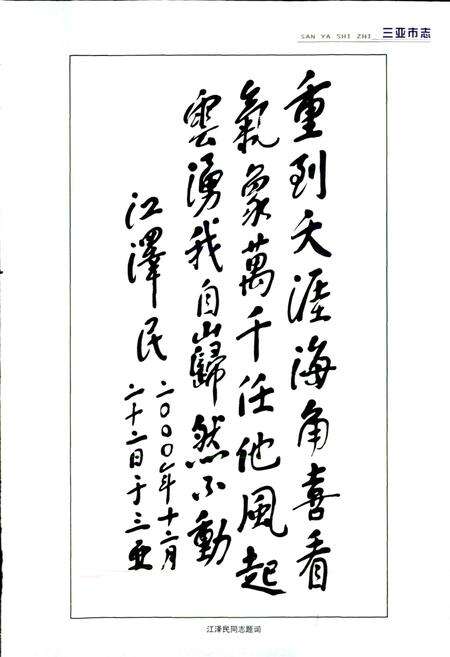 SAN YA SHI ZHI 三亚市志
重到天涯海角喜看
氣象萬千任他風起
雲湧我自巋然不動
江澤民
二〇〇〇年十二月
二十二日于三亞
江泽民同志题词